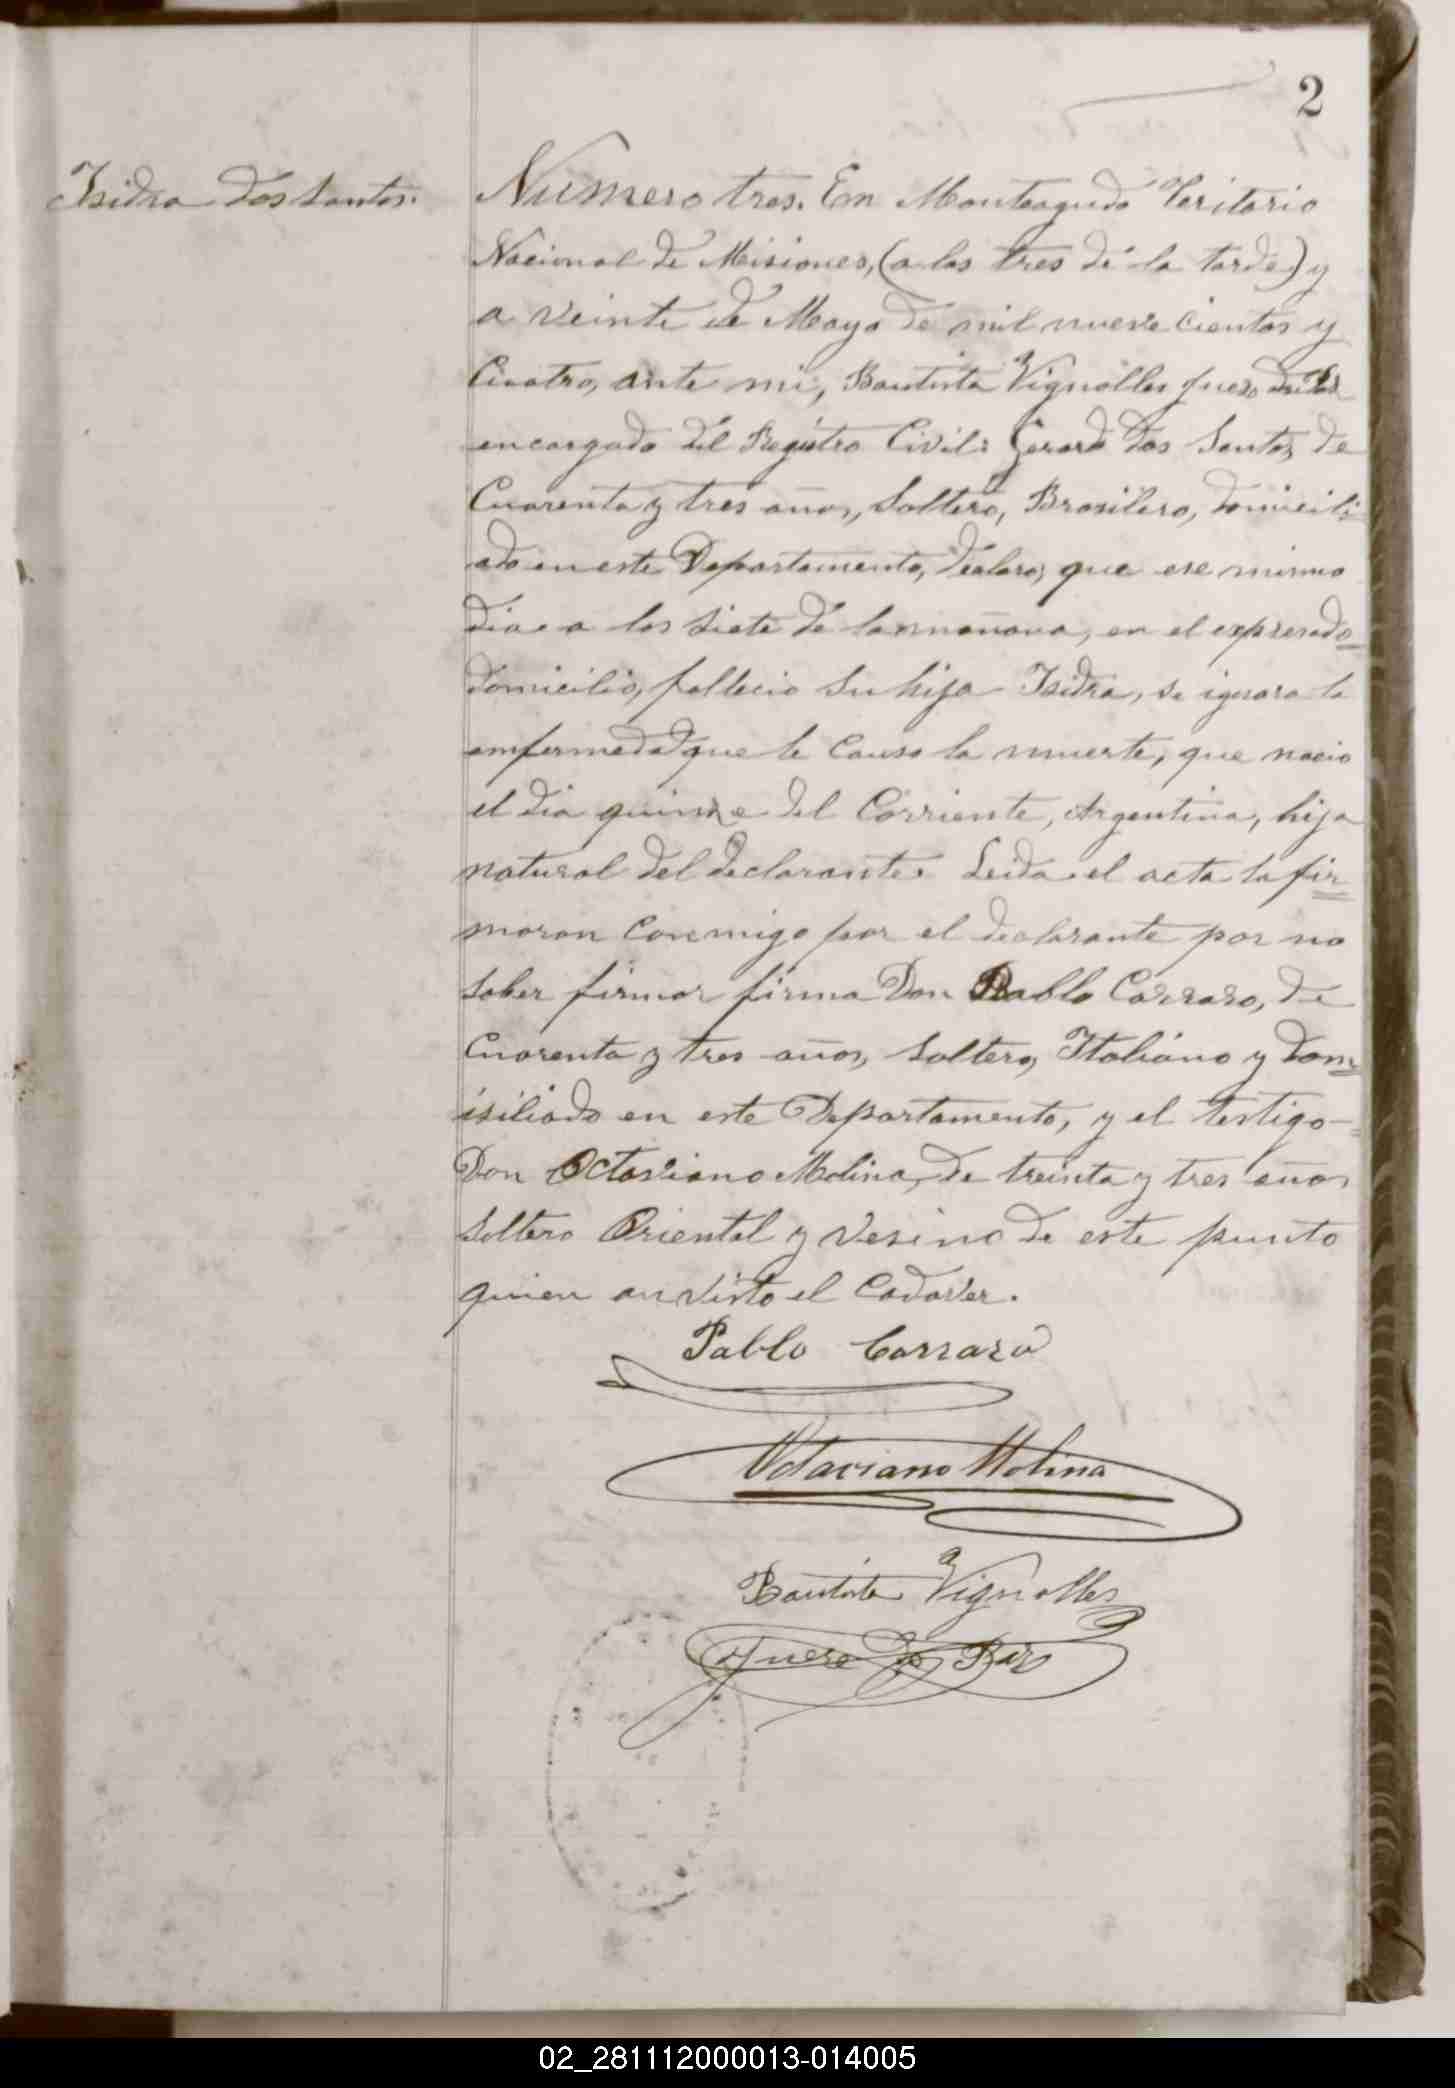 2
Isidra dos Santos.
Numero tres. En Monteagudo Teritorio
Nacional de Misiones, (a las tres de la tarde) y
a veinte de Mayo de mil nueve cientos y
Cuatro, ante mi, Bautista Vignolles Jues de Paz
encargado del Registro Civil: Gerardo dos Santos, de
Cuarenta y tres años, Soltero, Brasilero, domicili
ado en este Departamento, declaro, que ese mismo
dia a las siete de la mañana, en el expresado
domicilio, fallecio su hija Isidra, se ignora la
enfermedad que le causo la muerte, que nacio
el dia quinse del Corriente, Argentina, hija
natural del declarante. Leida el acta la fir
maron conmigo por el declarante por no
saber firmar firma Don Pablo Carraro, de
Cuarenta y tres años, Soltero, Italiano y dom
isiliado en este Departamento, y el testigo
Don Octaviano Molina, de treinta y tres años
Soltero Oriental y vesino de este punto
quien an visto el Cadaver.
Pablo Carraro
Octaciano Molina
Bautista Vignolles
Juese de Paz
02_281112000013-014005